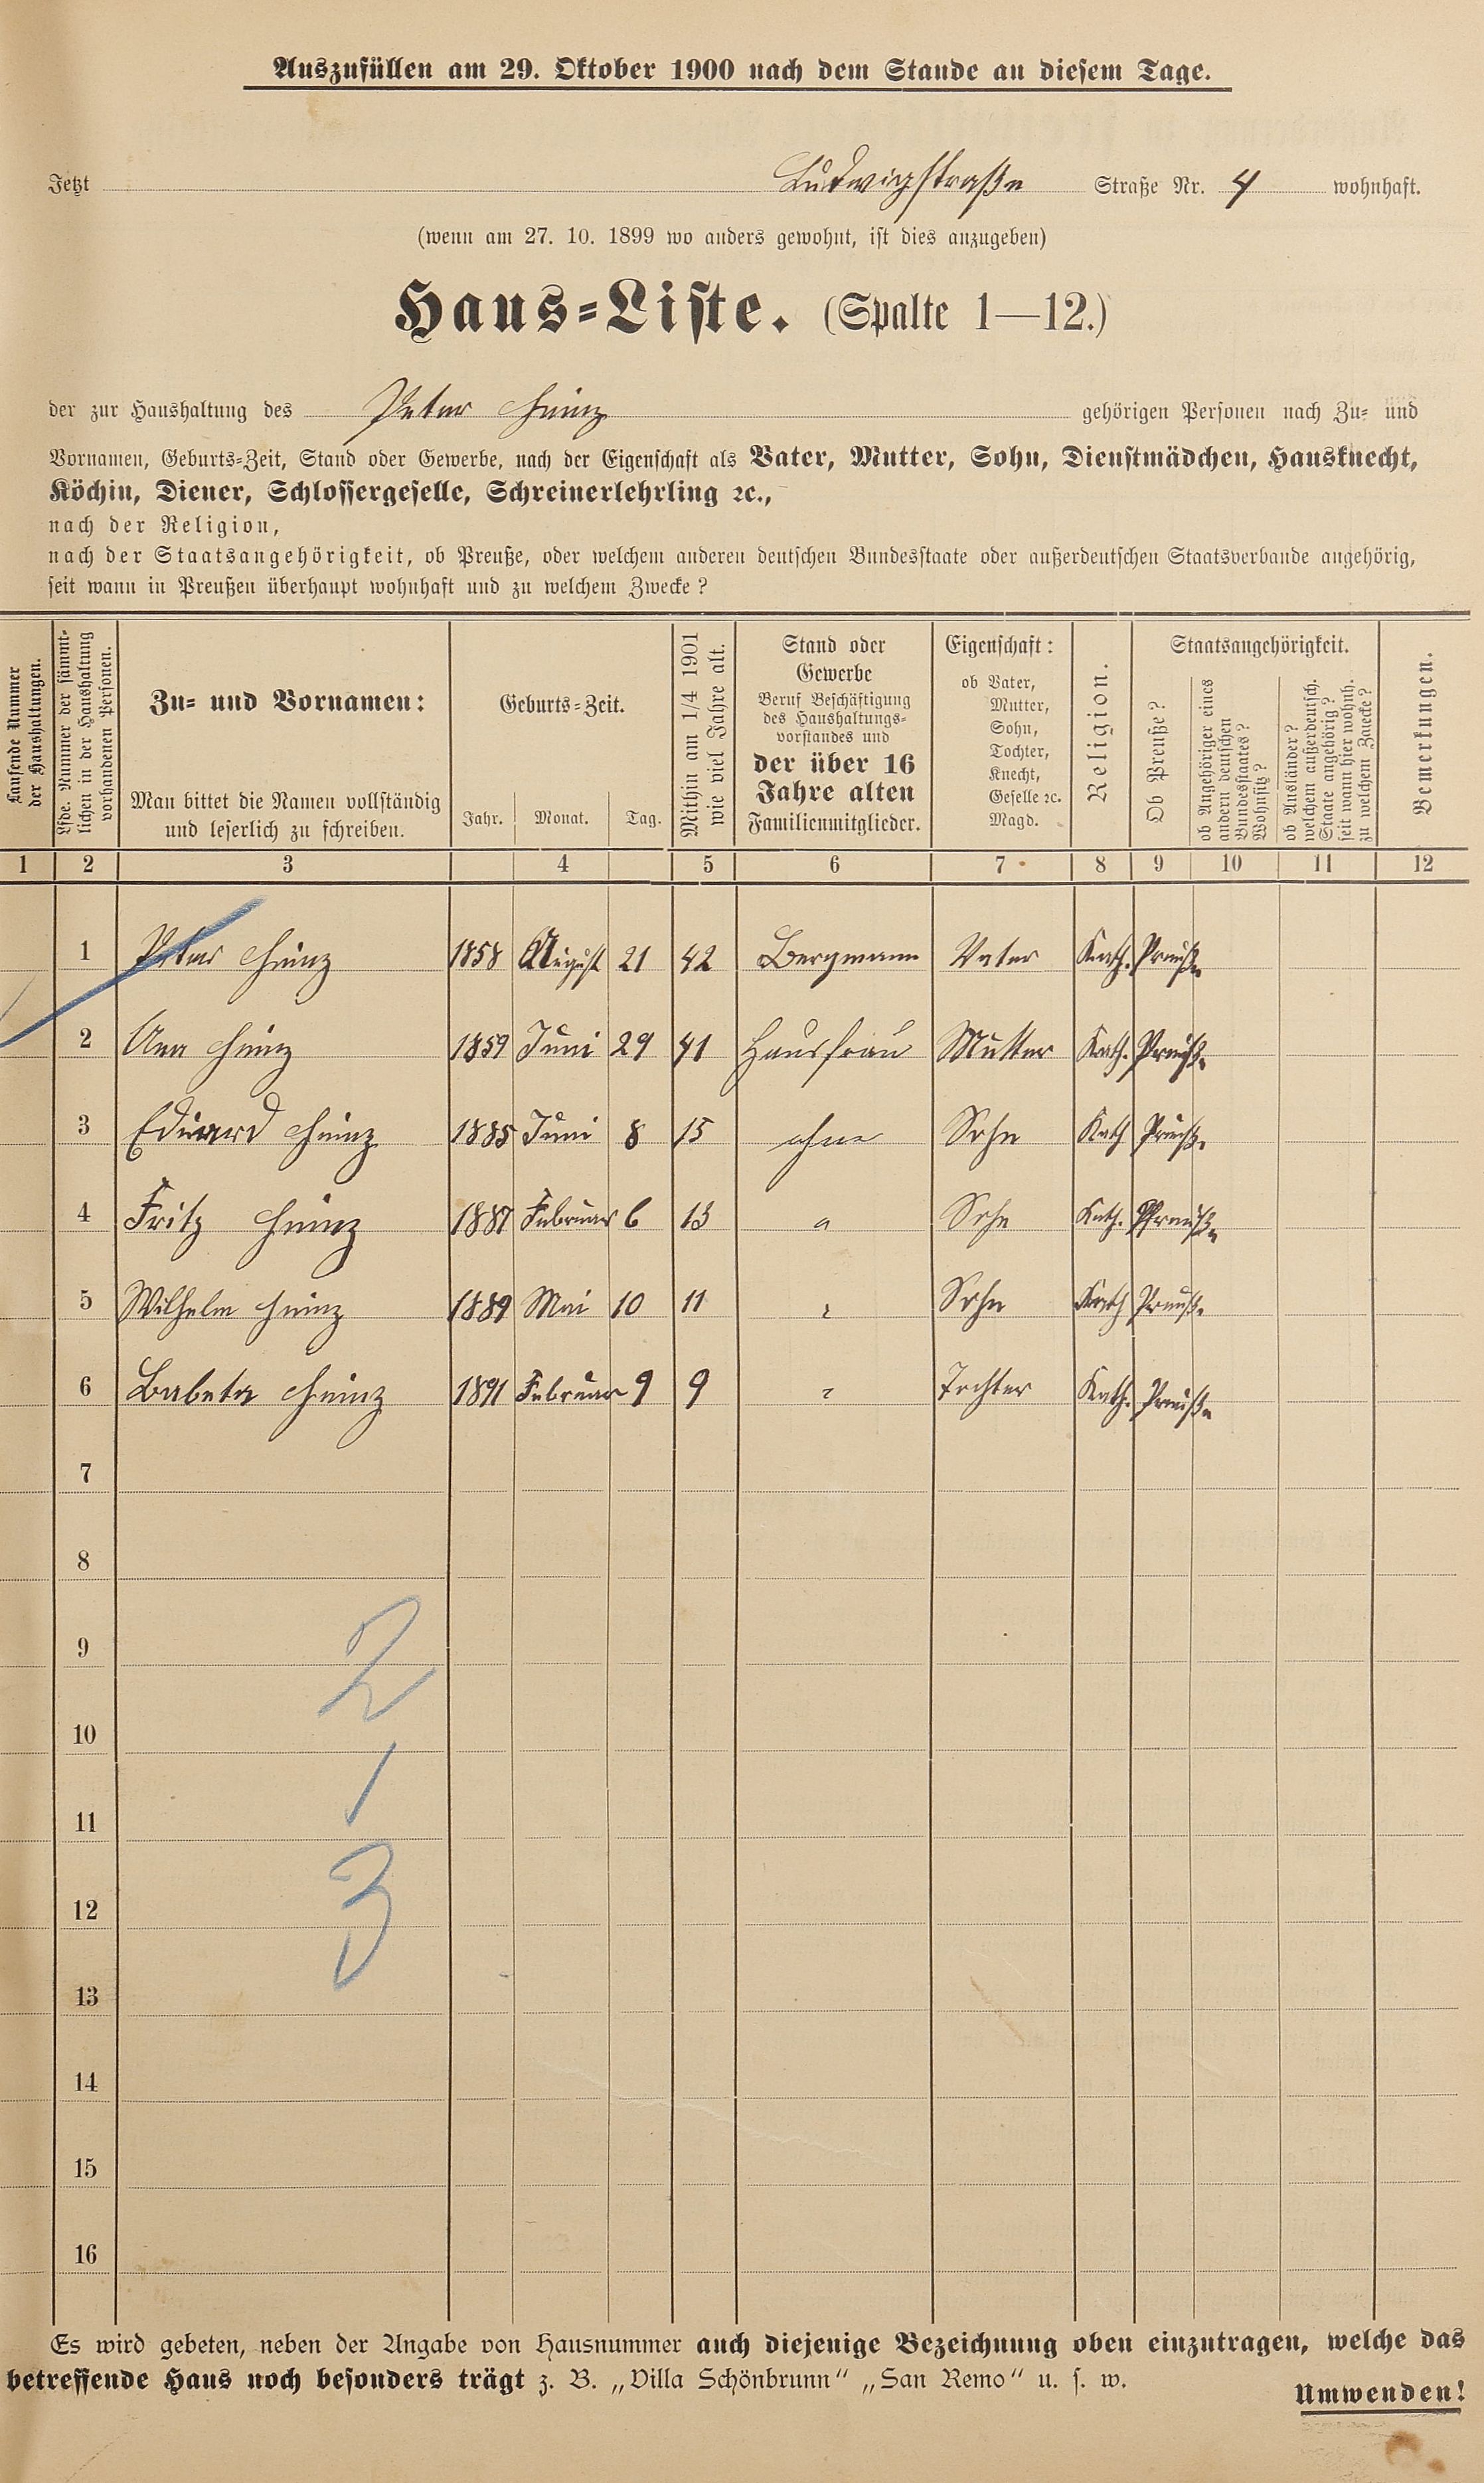 Auszufüllen am 29. Oktober 1900 nach dem Stande an diesem Tage.
Jetzt Ludwigstraße Straße Nr. 4 wohnhaft.
(wenn am 27. 10. 1899 wo anders gewohnt, ist dies anzugeben)
Haus-Liste. (Spalte 1—12.)
der zur Haushaltung des Peter Heinz gehörigen Personen nach Zu- und
Vornamen, Geburts-Zeit, Stand oder Gewerbe, nach der Eigenschaft als Vater, Mutter, Sohn, Dienstmädchen, Hausknecht,
Köchin, Diener, Schlossergeselle, Schreinerlehrling ꝛc.,
nach der Religion,
nach der Staatsangehörigkeit, ob Preuße, oder welchem anderen deutschen Bundesstaate oder außerdeutschen Staatsverbande angehörig,
seit wann in Preußen überhaupt wohnhaft und zu welchem Zwecke?
Laufende Nummer
der Haushaltungen.
Lfde. Nummer der sämmt-
lichen in der Haushaltung
vorhandenen Personen.
Zu- und Vornamen:
Man bittet die Namen vollständig
und leserlich zu schreiben.
Geburts-Zeit.
Jahr. Monat. Tag.
Mithin am 1/4 1901
wie viel Jahre alt.
Stand oder
Gewerbe
Beruf Beschäftigung
des Haushaltungs-
vorstandes und
der über 16
Jahre alten
Familienmitglieder.
Eigenschaft:
ob Vater,
Mutter,
Sohn,
Tochter,
Knecht,
Geselle ꝛc.
Magd.
Religion.
Staatsangehörigkeit.
Ob Preuße?
ob Angehöriger eines
andern deutschen
Bundesstaates?
Wohnsitz?
ob Ausländer?
welchem außerdeutsch.
Staate angehörig?
seit wann hier wohnh.
zu welchem Zwecke?
Bemerkungen.
1 2 3 4 5 6 7 8 9 10 11 12
1 Peter Heinz 1858 August 21 42 Bergmann Vater Kath. Preuße
2 Ana Heinz 1859 Juni 29 41 Hausfrau Mutter Kath. Preuße
3 Eduard Heinz 1885 Juni 8 15 ohne Sohn Kath Preuße
4 Fritz Heinz 1887 Februar 6 13 " Sohn Kath. Preuße
5 Wilhelm Heinz 1889 Mai 10 11 " Sohn Kath Preuße
6 Babeta Heinz 1891 Februar 9 9 " Tochter Kath. Preuße
7
8
9
2
10
1
11
3
12
13
14
15
16
Es wird gebeten, neben der Angabe von Hausnummer auch diejenige Bezeichnung oben einzutragen, welche das
betreffende Haus noch besonders trägt z. B. „Villa Schönbrunn“ „San Remo“ u. s. w.
Umwenden!